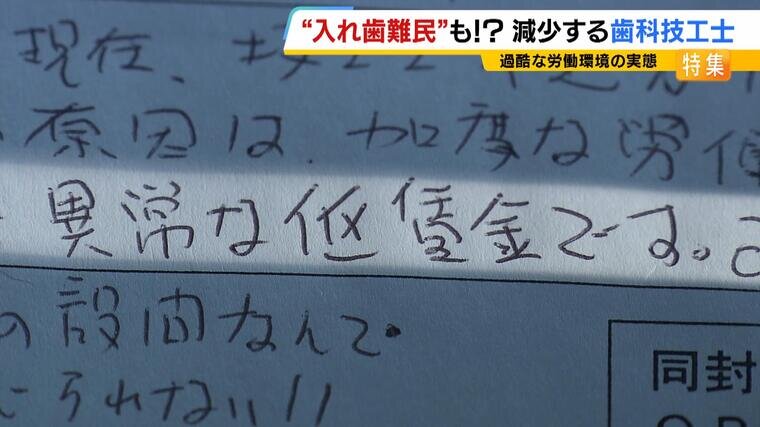 “入れ歯難民”も!? 減少する歯科技工士
過酷な労働環境の実態
特集
現在、
原因は、加度な労働
異常な低賃金です。
の設問なんて
られない!!
同封